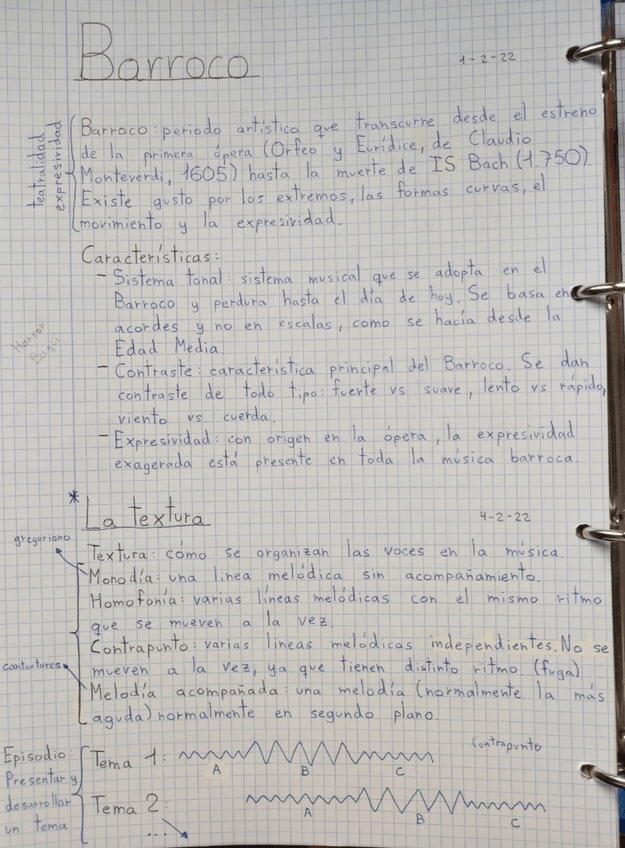 Barroco
1-2-22
teatralidad
expresividad
Barroco: periodo artístico que transcurre desde el estreno
de la primera ópera (Orfeo y Eurídice, de Claudio
Monteverdi, 1605) hasta la muerte de IS Bach (1.750).
Existe gusto por los extremos, las formas curvas, el
movimiento y la expresividad.
Características:
- Sistema tonal: sistema musical que se adopta en el
Barroco y perdura hasta el día de hoy. Se basa en
acordes y no en escalas, como se hacía desde la
Edad Media.
- Contraste: característica principal del Barroco. Se dan
contraste de todo tipo: fuerte vs suave, lento vs rápido,
viento vs cuerda.
- Expresividad: con origen en la ópera, la expresividad
exagerada está presente en toda la música barroca.
* La textura
4-2-22
gregoriano
Textura: cómo se organizan las voces en la música.
Monodía: una linea melódica sin acompañamiento.
Homofonía: varias líneas melódicas con el mismo ritmo
que se mueven a la vez.
Contrapunto: varias lineas melódicas independientes. No se
mueven a la vez, ya que tienen distinto ritmo. (fuga)
cantautores
Melodía acompañada: una melodía (normalmente la más
aguda) normalmente en segundo plano.
Episodio:
Presentar y
desarrollar
un tema
Tema 1:
A B C
contrapunto
Tema 2:
A B C
...